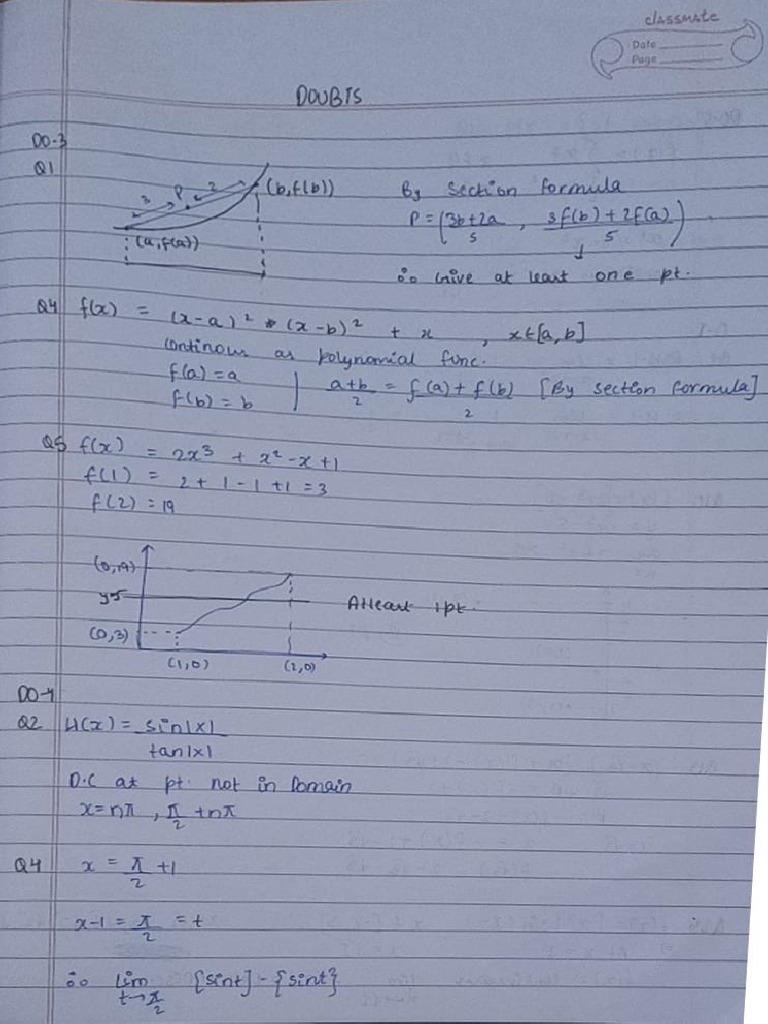 classmate
Date
Page
DOUBTS
DO-3
Q1
3 P 2 (b, f(b))
(a, f(a))
By section formula
P = (3b+2a/5 , 3f(b)+2f(a)/5)
↓
∴ Give at least one pt.
Q4 f(x) = (x-a)² * (x-b)² + x , x∈[a,b]
continous as polynomial func.
f(a) = a | a+b/2 = f(a)+f(b)/2 [By section formula]
f(b) = b
Q5 f(x) = 2x³ + x² - x + 1
f(1) = 2 + 1 - 1 + 1 = 3
f(2) = 19
(0,19)
y=5
Atleast 1pt.
(0,3)
(1,0) (2,0)
DO-4
Q2 H(x) = sin|x|/tan|x|
D.C at pt. not in Domain
x = nπ , π/2 + nπ
Q4 x = π/2 + 1
x-1 = π/2 = t
∴ lim t→π/2 {sint] - {sint}